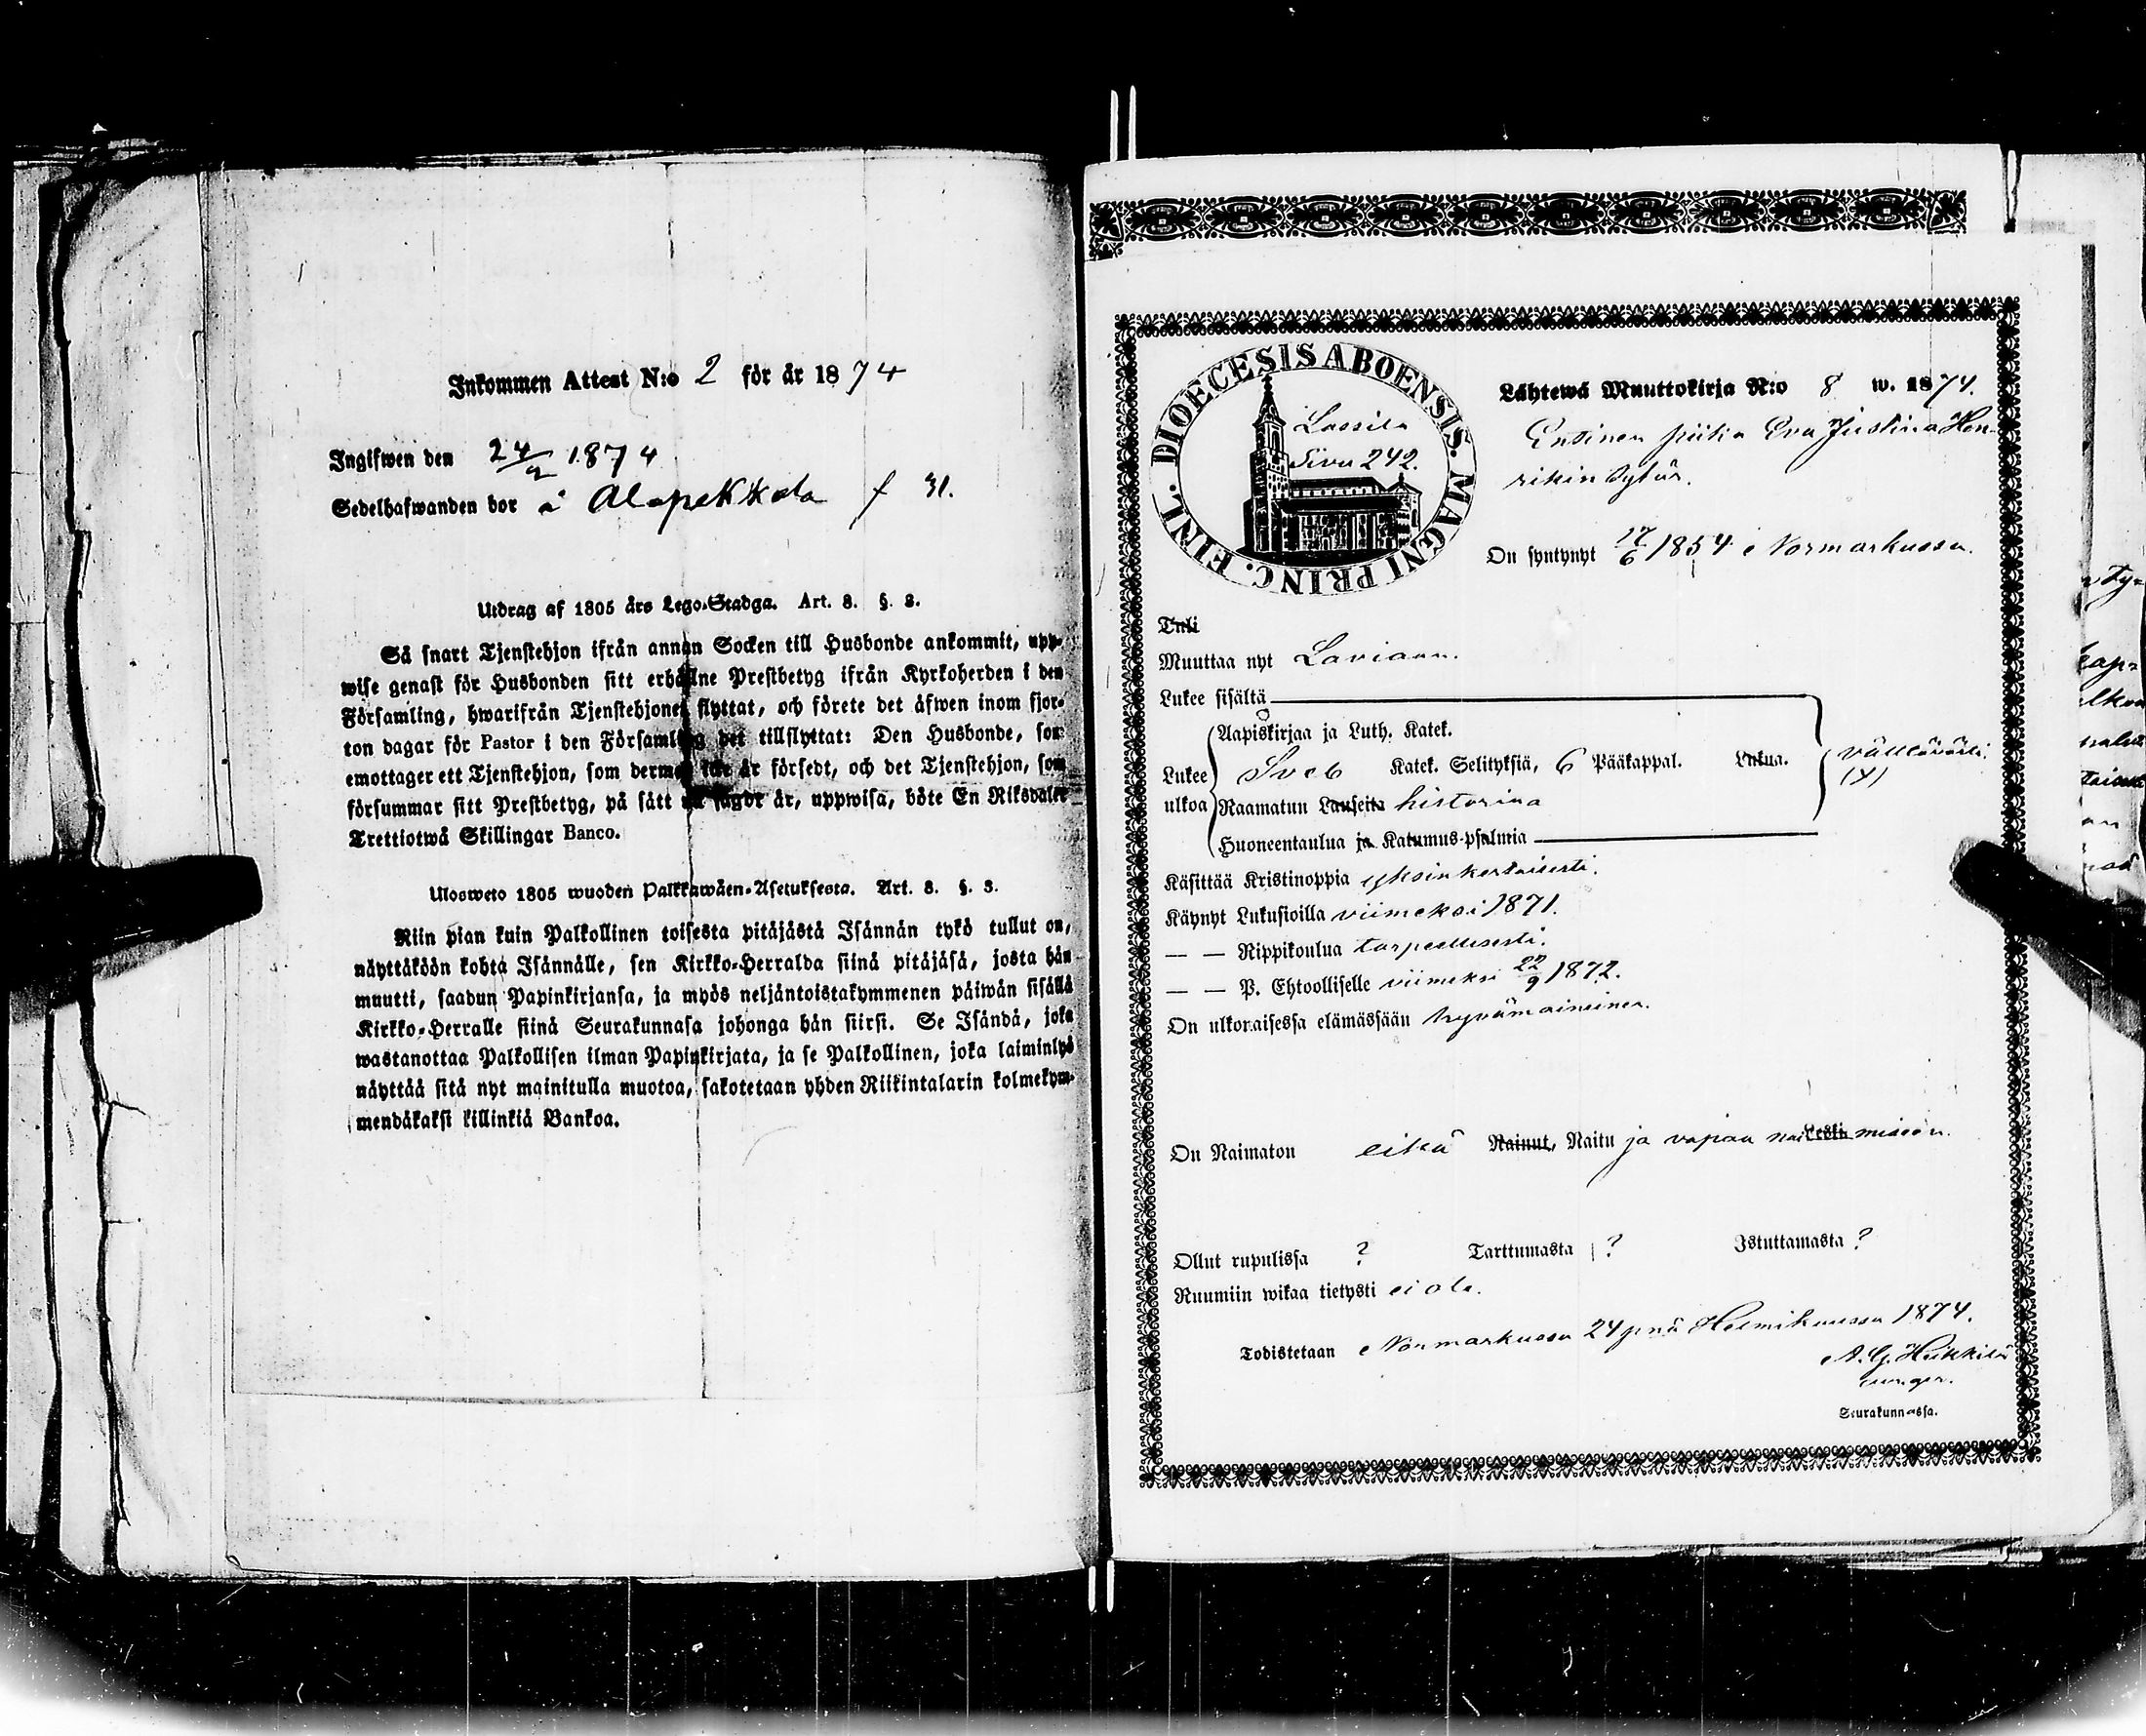 Inkommen Attest N:o 2 för år 1874
Ingifwen den 24/2 1874
Sedelhafwanden bor i Alapekkola f 31.
Utdrag af 1805 års Lego-Stadga. Art. 8. §. 3.
Så snart Tjenstehjon ifrån annan Socken till Husbonde ankommit, upp-
wise genast för Husbonden sitt erhållne Prestbetyg ifrån Kyrkoherden i den
Församling, hwarifrån Tjenstehjonet flyttat, och förete det äfwen inom fjor-
ton dagar för Pastor i den Församling det tillflyttat: Den Husbonde, som
emottager ett Tjenstehjon, som dermed icke är försedt, och det Tjenstehjon, som
försummar sitt Prestbetyg, på sätt nu sagdt är, uppwisa, böte En Riksdaler
Trettiotwå Skillingar Banco.
Ulosweto 1805 wuoden Palkkawäen-Asetuksesta. Art. 8. §. 3.
Niin pian kuin Palkollinen toisesta pitäjästä Isännän tykö tullut on,
näyttäköön kohta Isännälle, sen Kirkko-Herralda siinä pitäjäsä, josta hän
muutti, saadun Papinkirjansa, ja myös neljäntoistakymmenen päiwän sisällä
Kirkko-Herralle siinä Seurakunnasa johonga hän siirsi. Se Isändä, joka
wastanottaa Palkollisen ilman Papinkirjata, ja se Palkollinen, joka laiminlyö
näyttää sitä nyt mainitulla muotoa, sakotetaan yhden Riikintalarin kolmekym-
mendäkaksi killinkiä Bankoa.
DIOECESIS ABOENSIS. MAGNI PRINC. FINL.
Lassila
Sivu 242.
Lähtewä Muuttokirja N:o 8 w. 1874.
Entinen piika Eva Justina Hen-
rikin tytär.
On syntynyt 17/6 1854 Normarkussa.
Tuli
Muuttaa nyt Laviaan.
Lukee sisältä
Aapiskirjaa ja Luth. Katek.
Lukee ulkoa Sveb Katek. Selityksiä, 6 Pääkappal. Lukua. välttävästi
Raamatun Lauseita historiaa
Huoneentaulua ja Katumus-psalmia
Käsittää Kristinoppia yksinkertaisesti.
Käynyt Lukusioilla viimeksi 1871.
— — Rippikoulua tarpeellisesti.
— — P. Ehtoolliselle viimeksi 22/9 1872.
On ulkonaisessa elämässään hyvämaineinen.
On Naimaton eikä Nainut, Naitu ja vapaa naimiseen. Leski
Ollut rupulissa ? Tarttumasta ? Istuttamasta ?
Ruumiin wikaa tietysti ei ole.
Todistetaan Normarkussa 24 p:nä Helmikuussa 1874.
A. G. Heikkilä
Seurakunnassa.